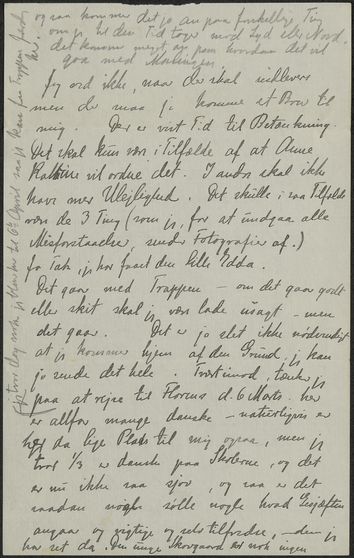 og saa kommer det jo an paa forskellige Ting
om jeg til den Tid tager mod Syd eller Nord.
det kommer meget an paa hvordan det vil
gaa med
Jeg ved ikke, naar de skal indleveres
men de maa jo komme et Brev til
mig. Der er vist Tid til Betænkning.
Det skal kun være i Tilfælde af at Anne
Kathrine vil ordne det. I andre skal ikke
have mer Ulejlighed. Det skulde i saa Tilfælde
være de 3 Ting (som jeg, for at undgaa alle
Misforstaaelser, sender Fotografier af.)
Jo Tak, jeg har faaet den lille Edda.
Det gaar med Trappen – om det gaar godt
eller skit skal jeg være lade usagt – men
det gaar. Det er jo slet ikke nødvendigt
at jeg kommer hjem af den Grund, jeg kan
jo sende det hele. Trods imod, tænker jeg
paa at rejse til Florens d. 6 Marts. her
er altfor mange danske – naturligvis er
her da lige Plads til mig ogsaa, men jeg
tror 1/3 er danske paa Skolerne, og det
er nu ikke saa sjov, og saa er det
saadan nogle sølle nogle hvad
angaar og vigtige og selvtilfredse, – den jeg
har set da. Den unge Skovgaard har nok ingen
jeg tror dog nok jeg bliver her til 1ste April saa jeg kan faa Trappen færdig
her.